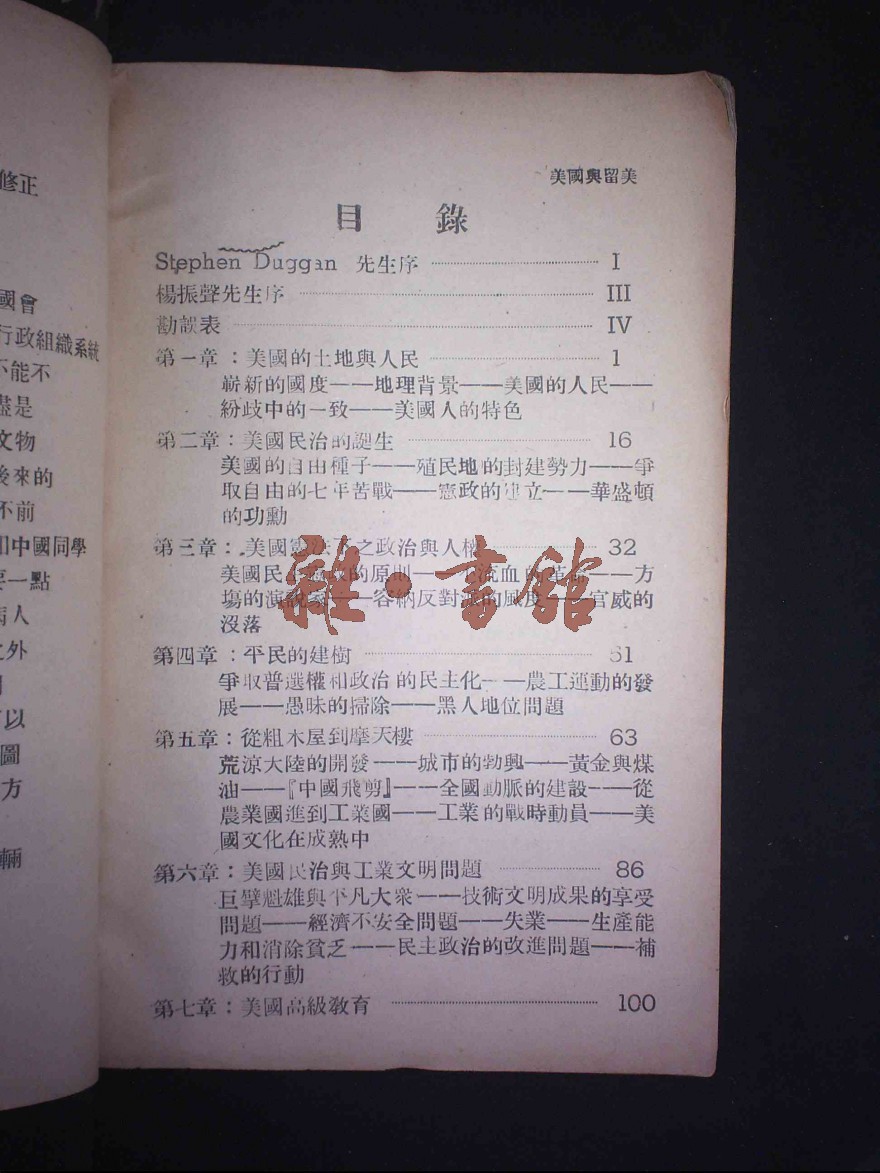 修正
國會
行政組織系統
不能不
盡是
文物
後來的
不前
和中國同學
要一點
病人
之外
可以
圖
方
輛
美國與留美
目 錄
Stephen Duggan 先生序 I
楊振聲先生序 III
勘誤表 IV
第一章：美國的土地與人民 1
嶄新的國度——地理背景——美國的人民——
紛歧中的一致——美國人的特色
第二章：美國民治的誕生 16
美國的自由種子——殖民地的封建勢力——爭
取自由的七年苦戰——憲政的建立——華盛頓
的功勳
第三章：美國憲法下之政治與人權 32
美國民主憲政的原則——不流血的革命——方
場的演說家——容納反對派的風度——官威的
沒落
第四章：平民的建樹 51
爭取普選權和政治的民主化——農工運動的發
展——愚昧的掃除——黑人地位問題
第五章：從粗木屋到摩天樓 63
荒涼大陸的開發——城市的勃興——黃金與煤
油——『中國飛剪』——全國動脈的建設——從
農業國進到工業國——工業的戰時動員——美
國文化在成熟中
第六章：美國民治與工業文明問題 86
巨擘魁雄與平凡大衆——技術文明成果的享受
問題——經濟不安全問題——失業——生產能
力和消除貧乏——民主政治的改進問題——補
救的行動
第七章：美國高級教育 100
雜·書館